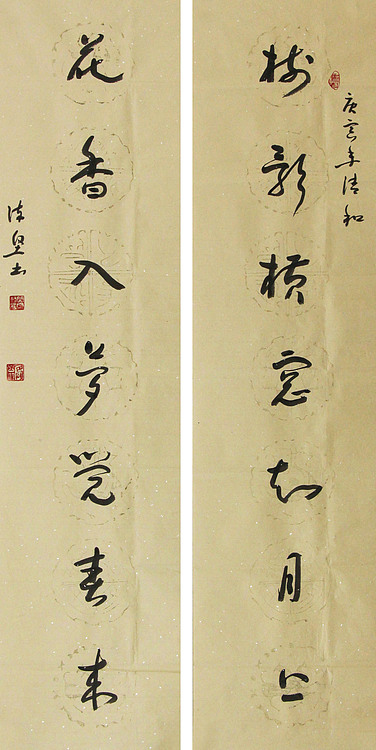 庚寅年清和
树影横窗知月上
花香入梦觉春来
陈坚书